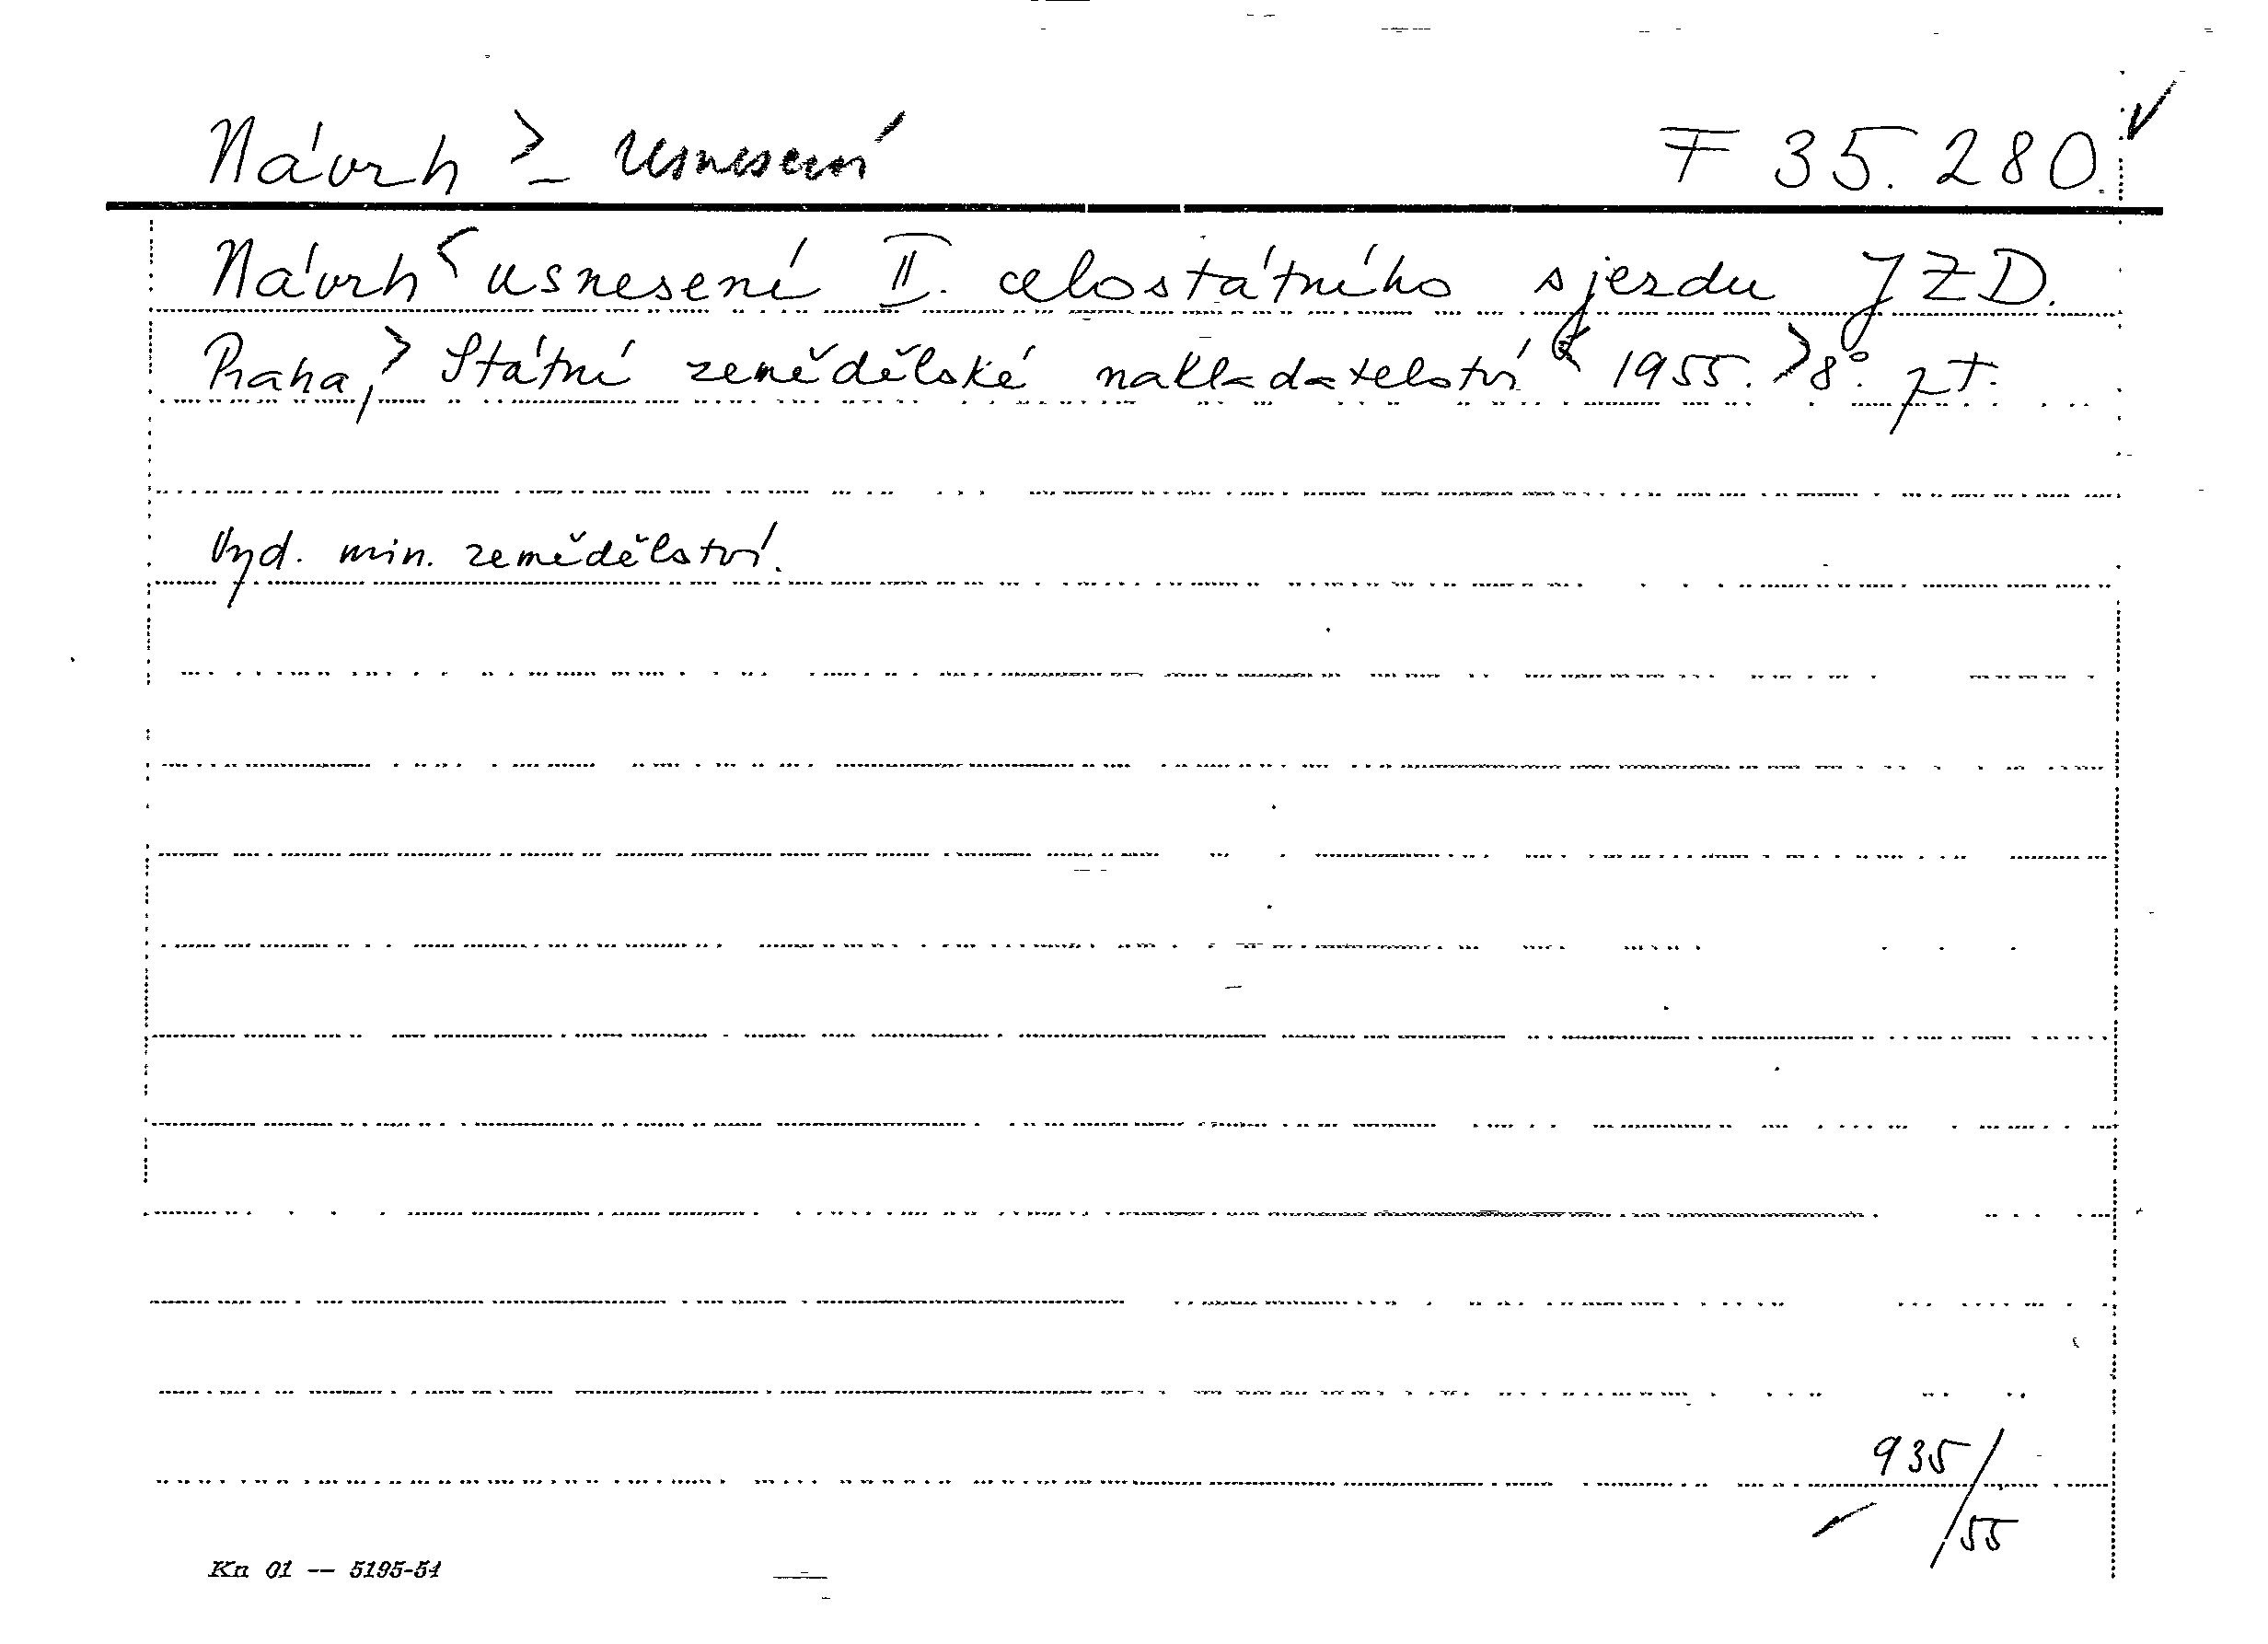 Návrh > - usnesení F 35.280. ✓
Návrh < usnesení II. celostátního sjezdu JZD.
Praha, > Státní zemědělské nakladatelství < 1955. > 8°. pt.
Vyd. min. zemědělství.
935/55
Kn 01 -- 5195-54